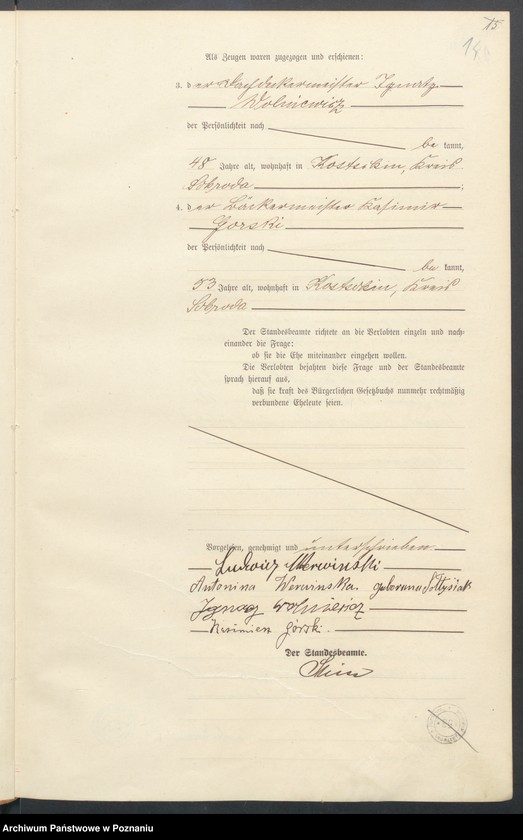 15
Als Zeugen waren zugezogen und erschienen:
3. der Dachdeckermeister Ignatz
Wolniewicz
der Persönlichkeit nach
be kannt,
48 Jahre alt, wohnhaft in Kostschin, Kreis
Schroda ;
4. der Bäckermeister Kasimir
Gorski
der Persönlichkeit nach
be kannt,
53 Jahre alt, wohnhaft in Kostschin, Kreis
Schroda
Der Standesbeamte richtete an die Verlobten einzeln und nach-
einander die Frage:
ob sie die Ehe miteinander eingehen wollen.
Die Verlobten bejahten diese Frage und der Standesbeamte
sprach hierauf aus,
daß sie kraft des Bürgerlichen Gesetzbuchs nunmehr rechtmäßig
verbundene Eheleute seien.
Vorgelesen, genehmigt und unterschrieben
Ludwig Werwinski
Antonina Werwinska geborena Sołtysiak
Ignacy Wolniewicz
Kazimierz Górski.
Der Standesbeamte.
Archiwum Państwowe w Poznaniu